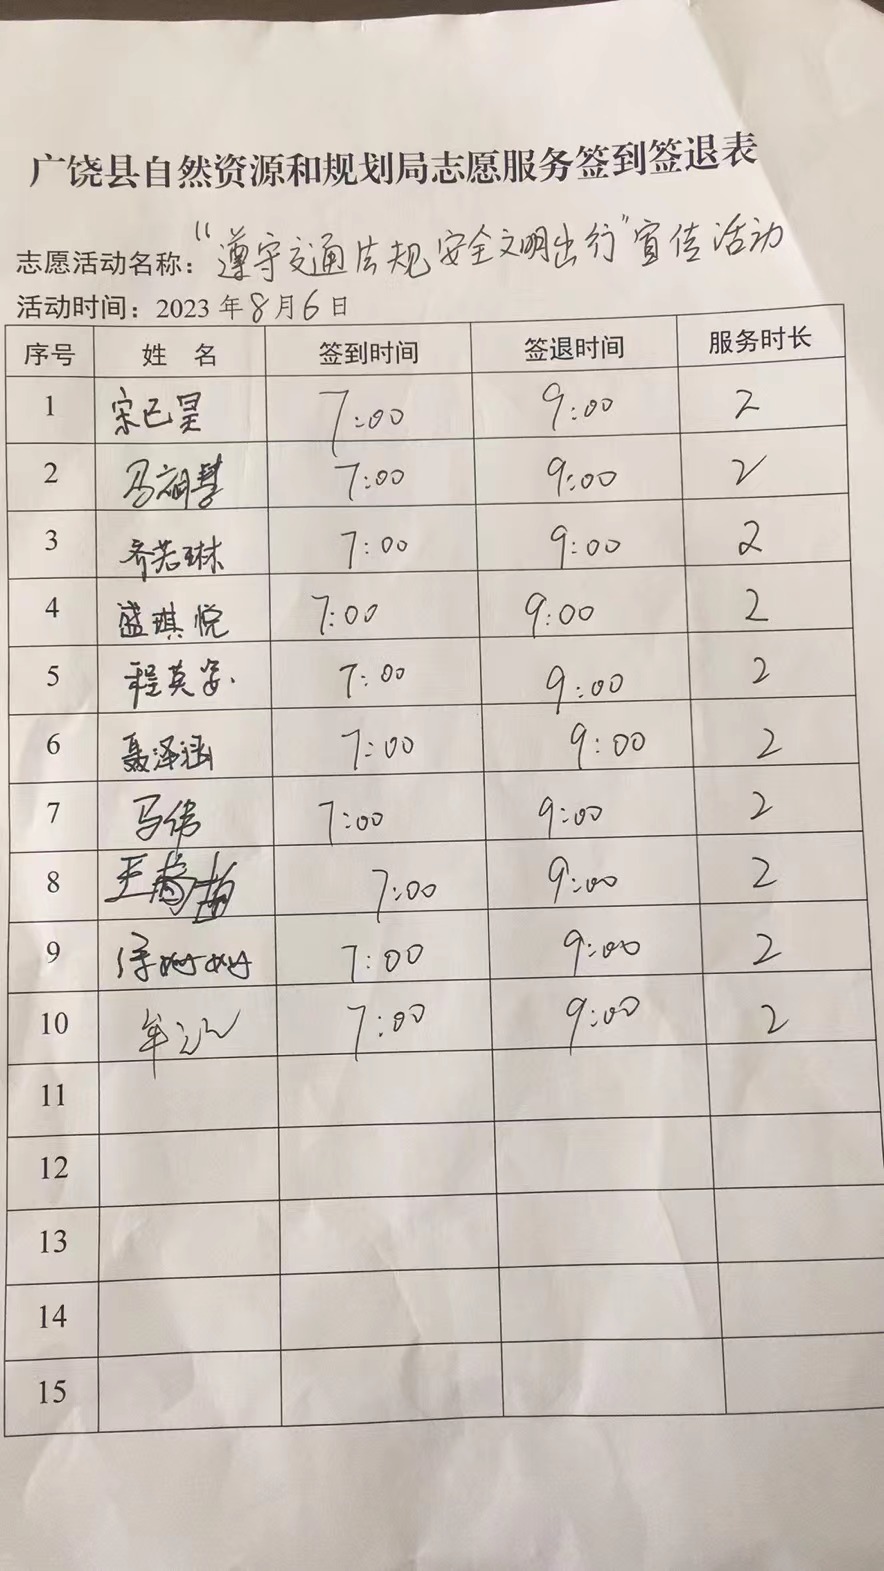 广饶县自然资源和规划局志愿服务签到签退表
志愿活动名称："遵守交通法规安全文明出行"宣传活动
活动时间：2023年8月6日
序号 姓 名 签到时间 签退时间 服务时长
1 宋已昊 7:00 9:00 2
2 马 7:00 9:00 2
3 齐若琳 7:00 9:00 2
4 盛琪悦 7:00 9:00 2
5 程英姿 7:00 9:00 2
6 聂泽涵 7:00 9:00 2
7 马伟 7:00 9:00 2
8 7:00 9:00 2
9 徐姗姗 7:00 9:00 2
10 7:00 9:00 2
11
12
13
14
15